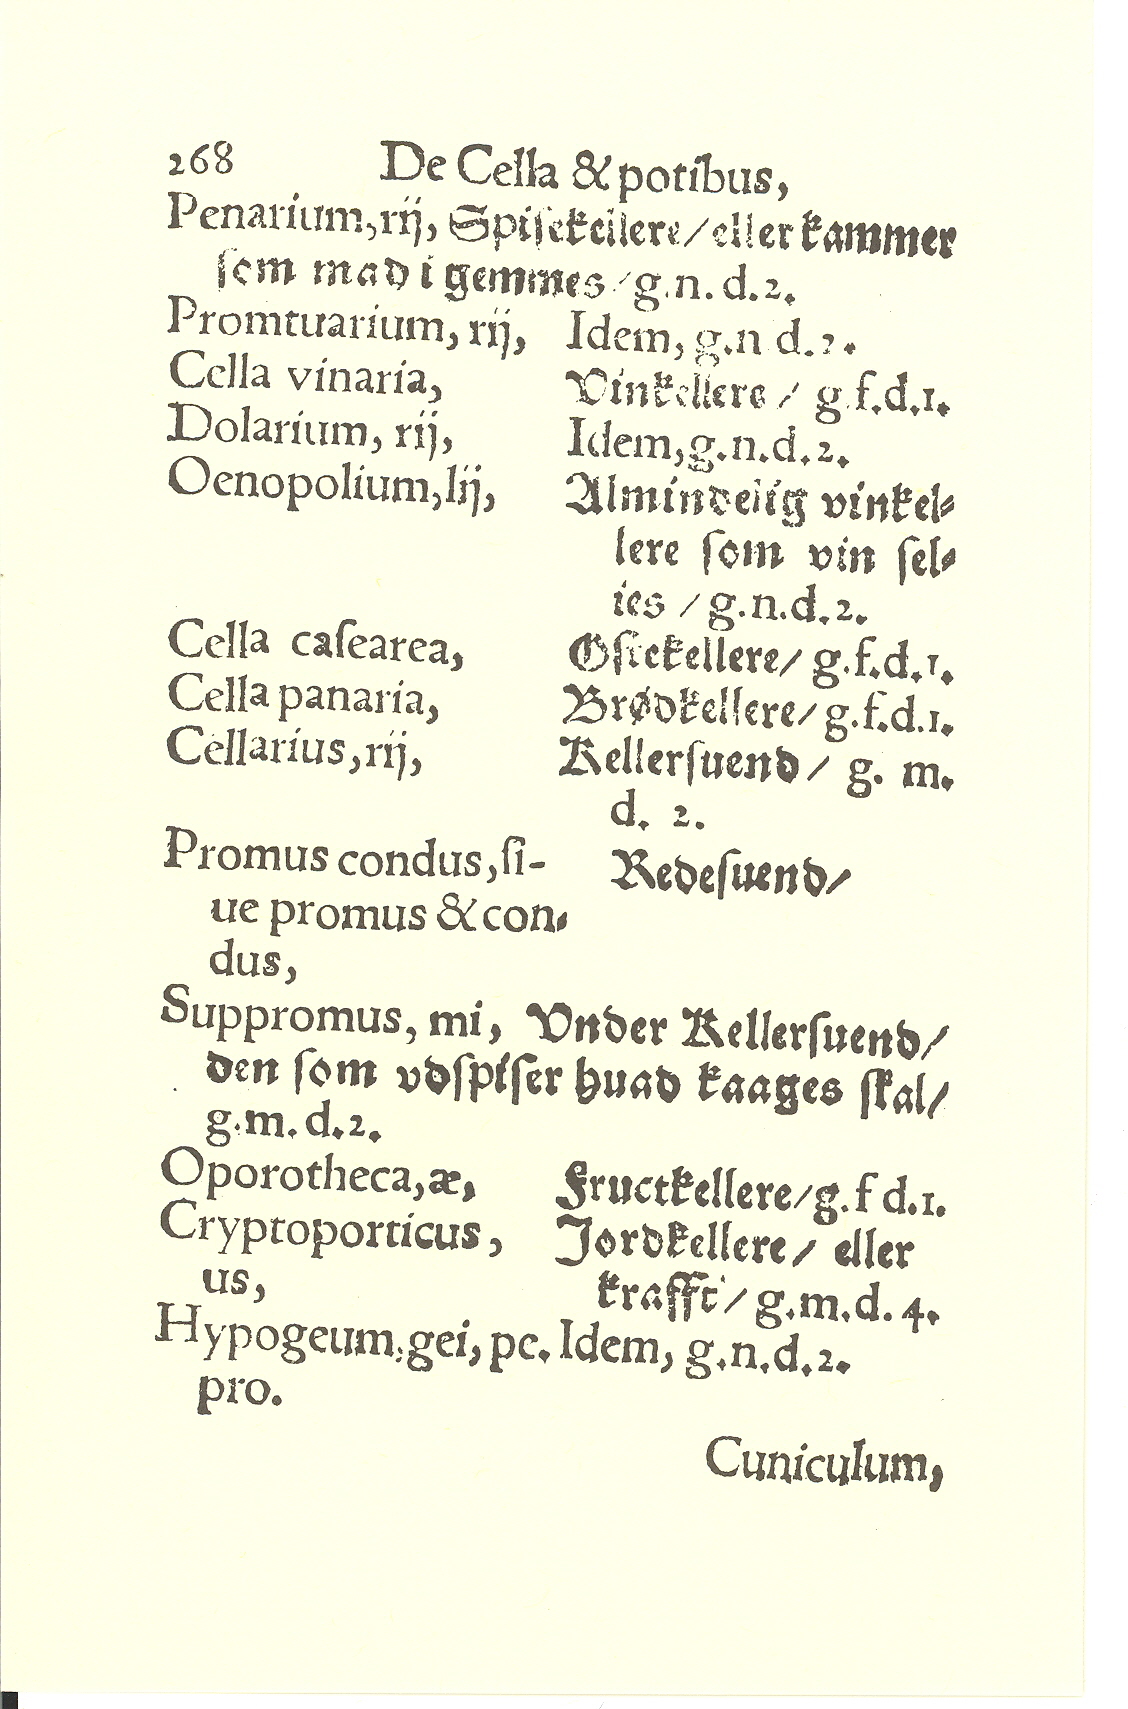 268 De Cella & potibus,
Penarium, rij, Spisekellere/ eller kammer
som mad i gemmes / g.n.d.2.
Promtuarium, rij, Idem, g.n d.2.
Cella vinaria, Vinkellere / g.f.d.1.
Dolarium, rij, Idem, g.n.d.2.
Oenopolium, lij, Almindelig vinkel-
lere som vin sel-
ies / g.n.d.2.
Cella casearea, Ostekellere/ g.f.d.1.
Cella panaria, Brødkellere/ g.f.d.1.
Cellarius, rij, Kellersuend/ g. m.
d. 2.
Promus condus, si- Redesuend/
ue promus & con-
dus,
Suppromus, mi, Vnder Kellersuend/
den som vdspiser huad kaages skal/
g.m.d.2.
Oporotheca, æ, Fructkellere/ g.f d.1.
Cryptoporticus, Jordkellere/ eller
us, krafft/ g.m.d.4.
Hypogeum, gei, pc. Idem, g.n.d.2.
pro.
Cuniculum,